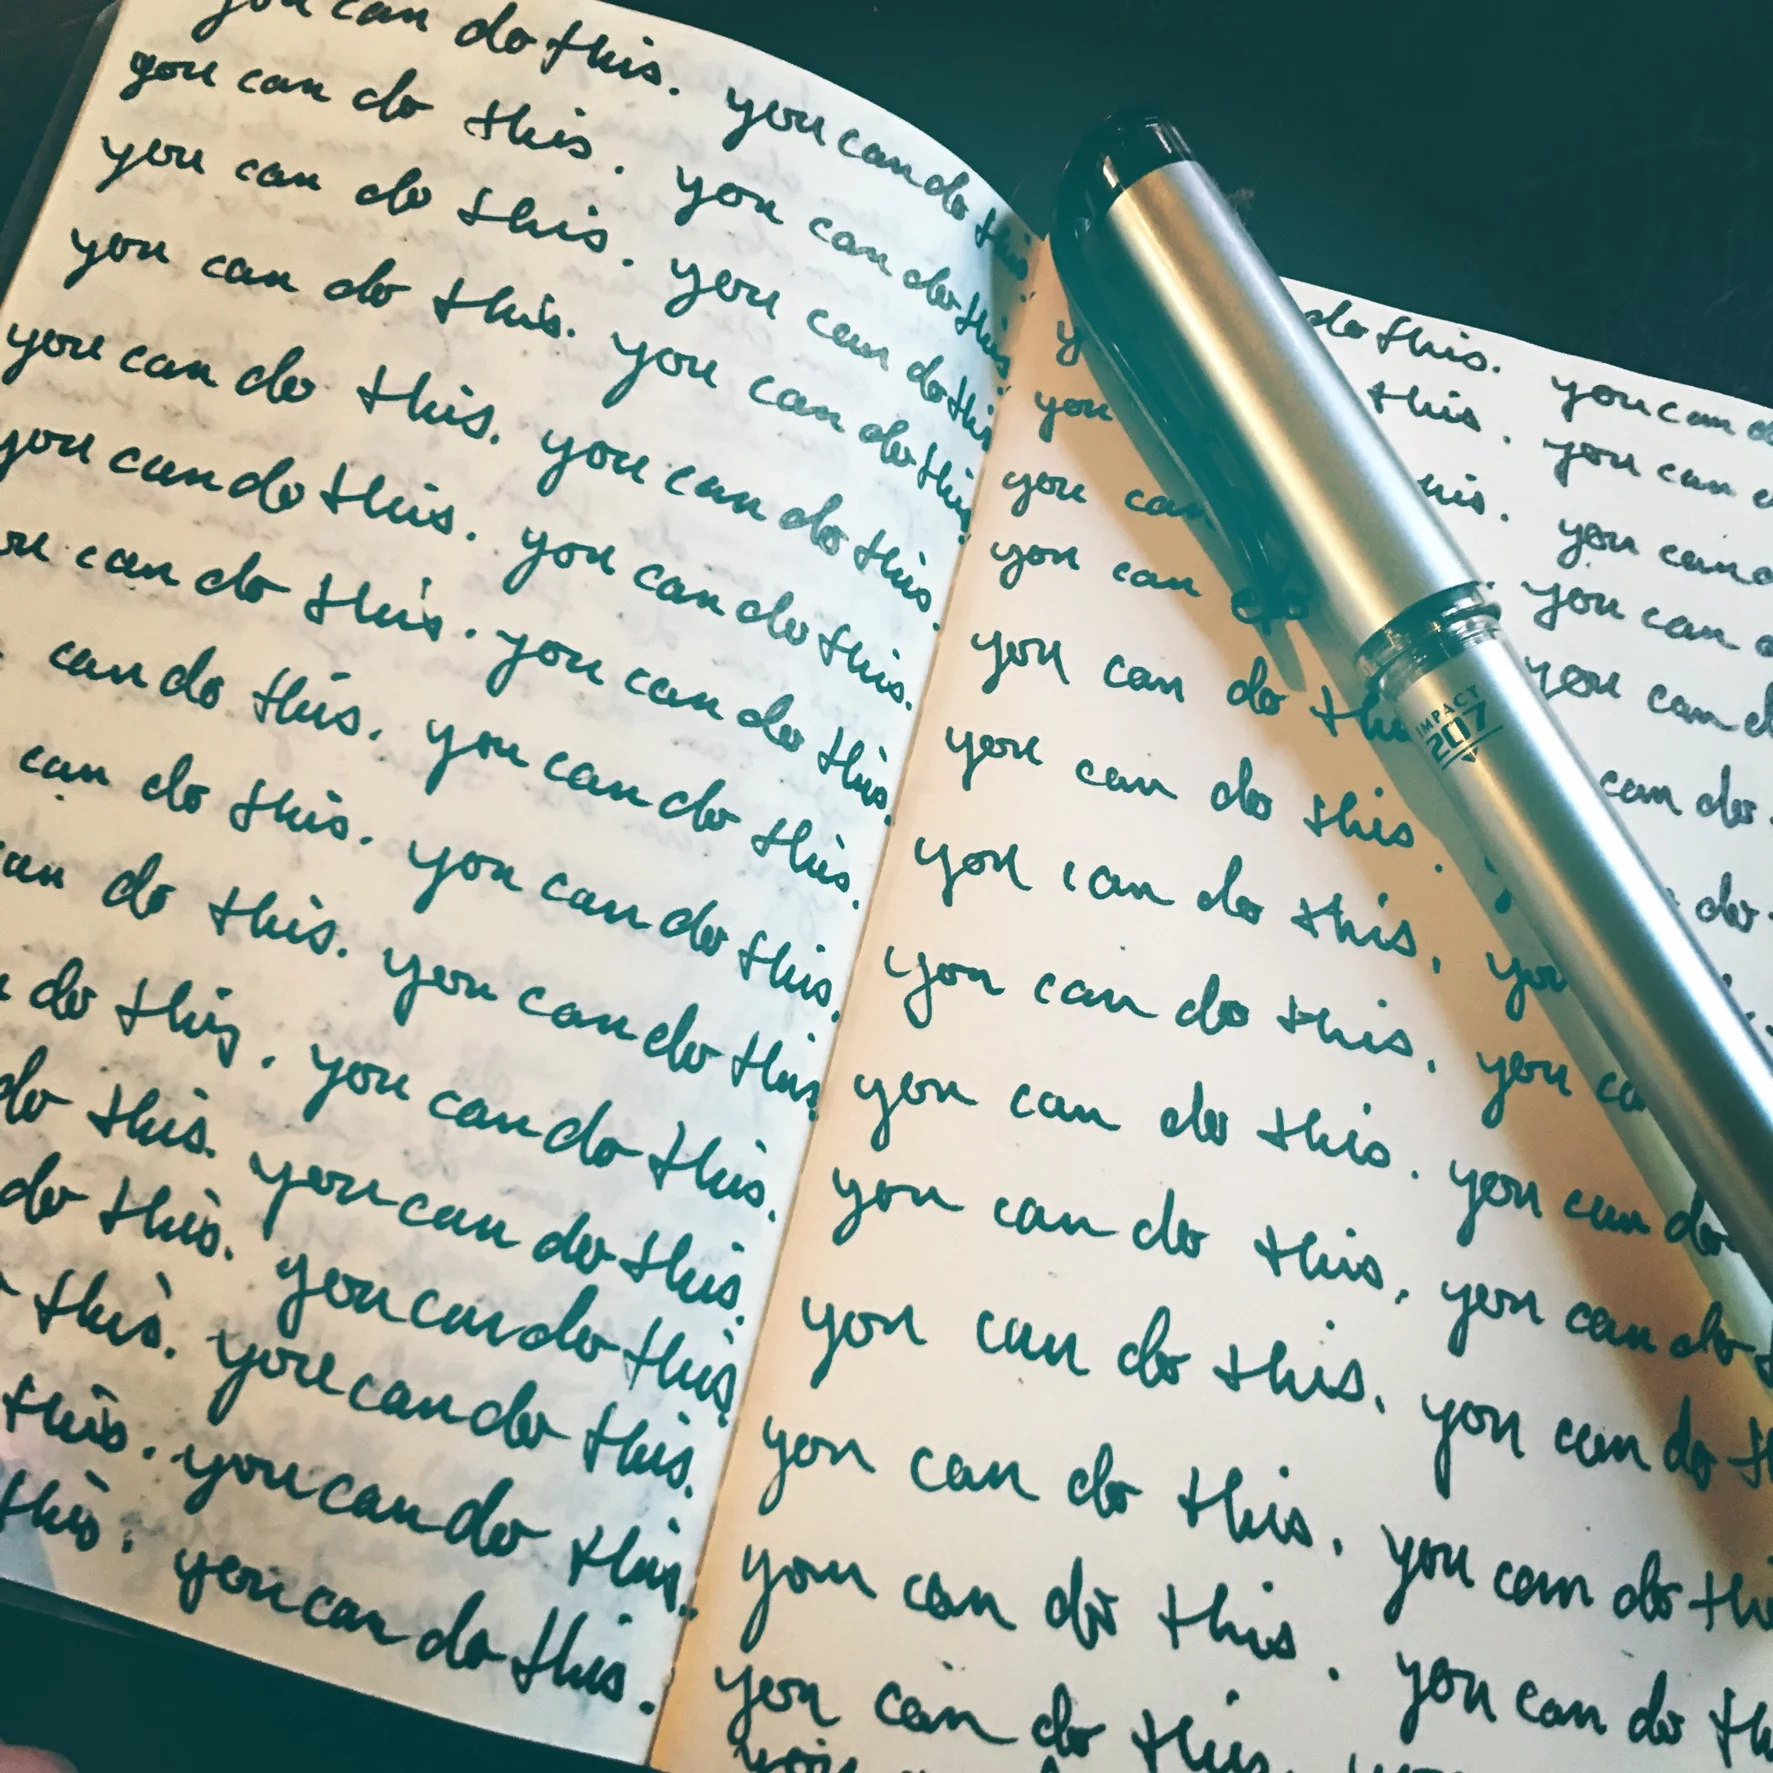 you can do this. you can do this.
you can do this. you can do this.
you can do this. you can do this.
you can do this. you can do this.
you can do this. you can do this.
you can do this. you can do this.
can do this. you can do this.
can do this. you can do this.
can do this. you can do this.
can do this. you can do this.
do this. you can do this.
do this. you can do this.
do this. you can do this.
this. you can do this.
this. you can do this.
this. you can do this.
do this. you can do
you this. you can
you can this. you can
you can do you can
you can do you can
you can do this. can do
you can do this, you do
you can do this, you
you can do this. you can do
you can do this, you can do
you can do this, you can do
you can do this, you can do
you can do this. you can do
you can do this,
you
IMPACT
2017